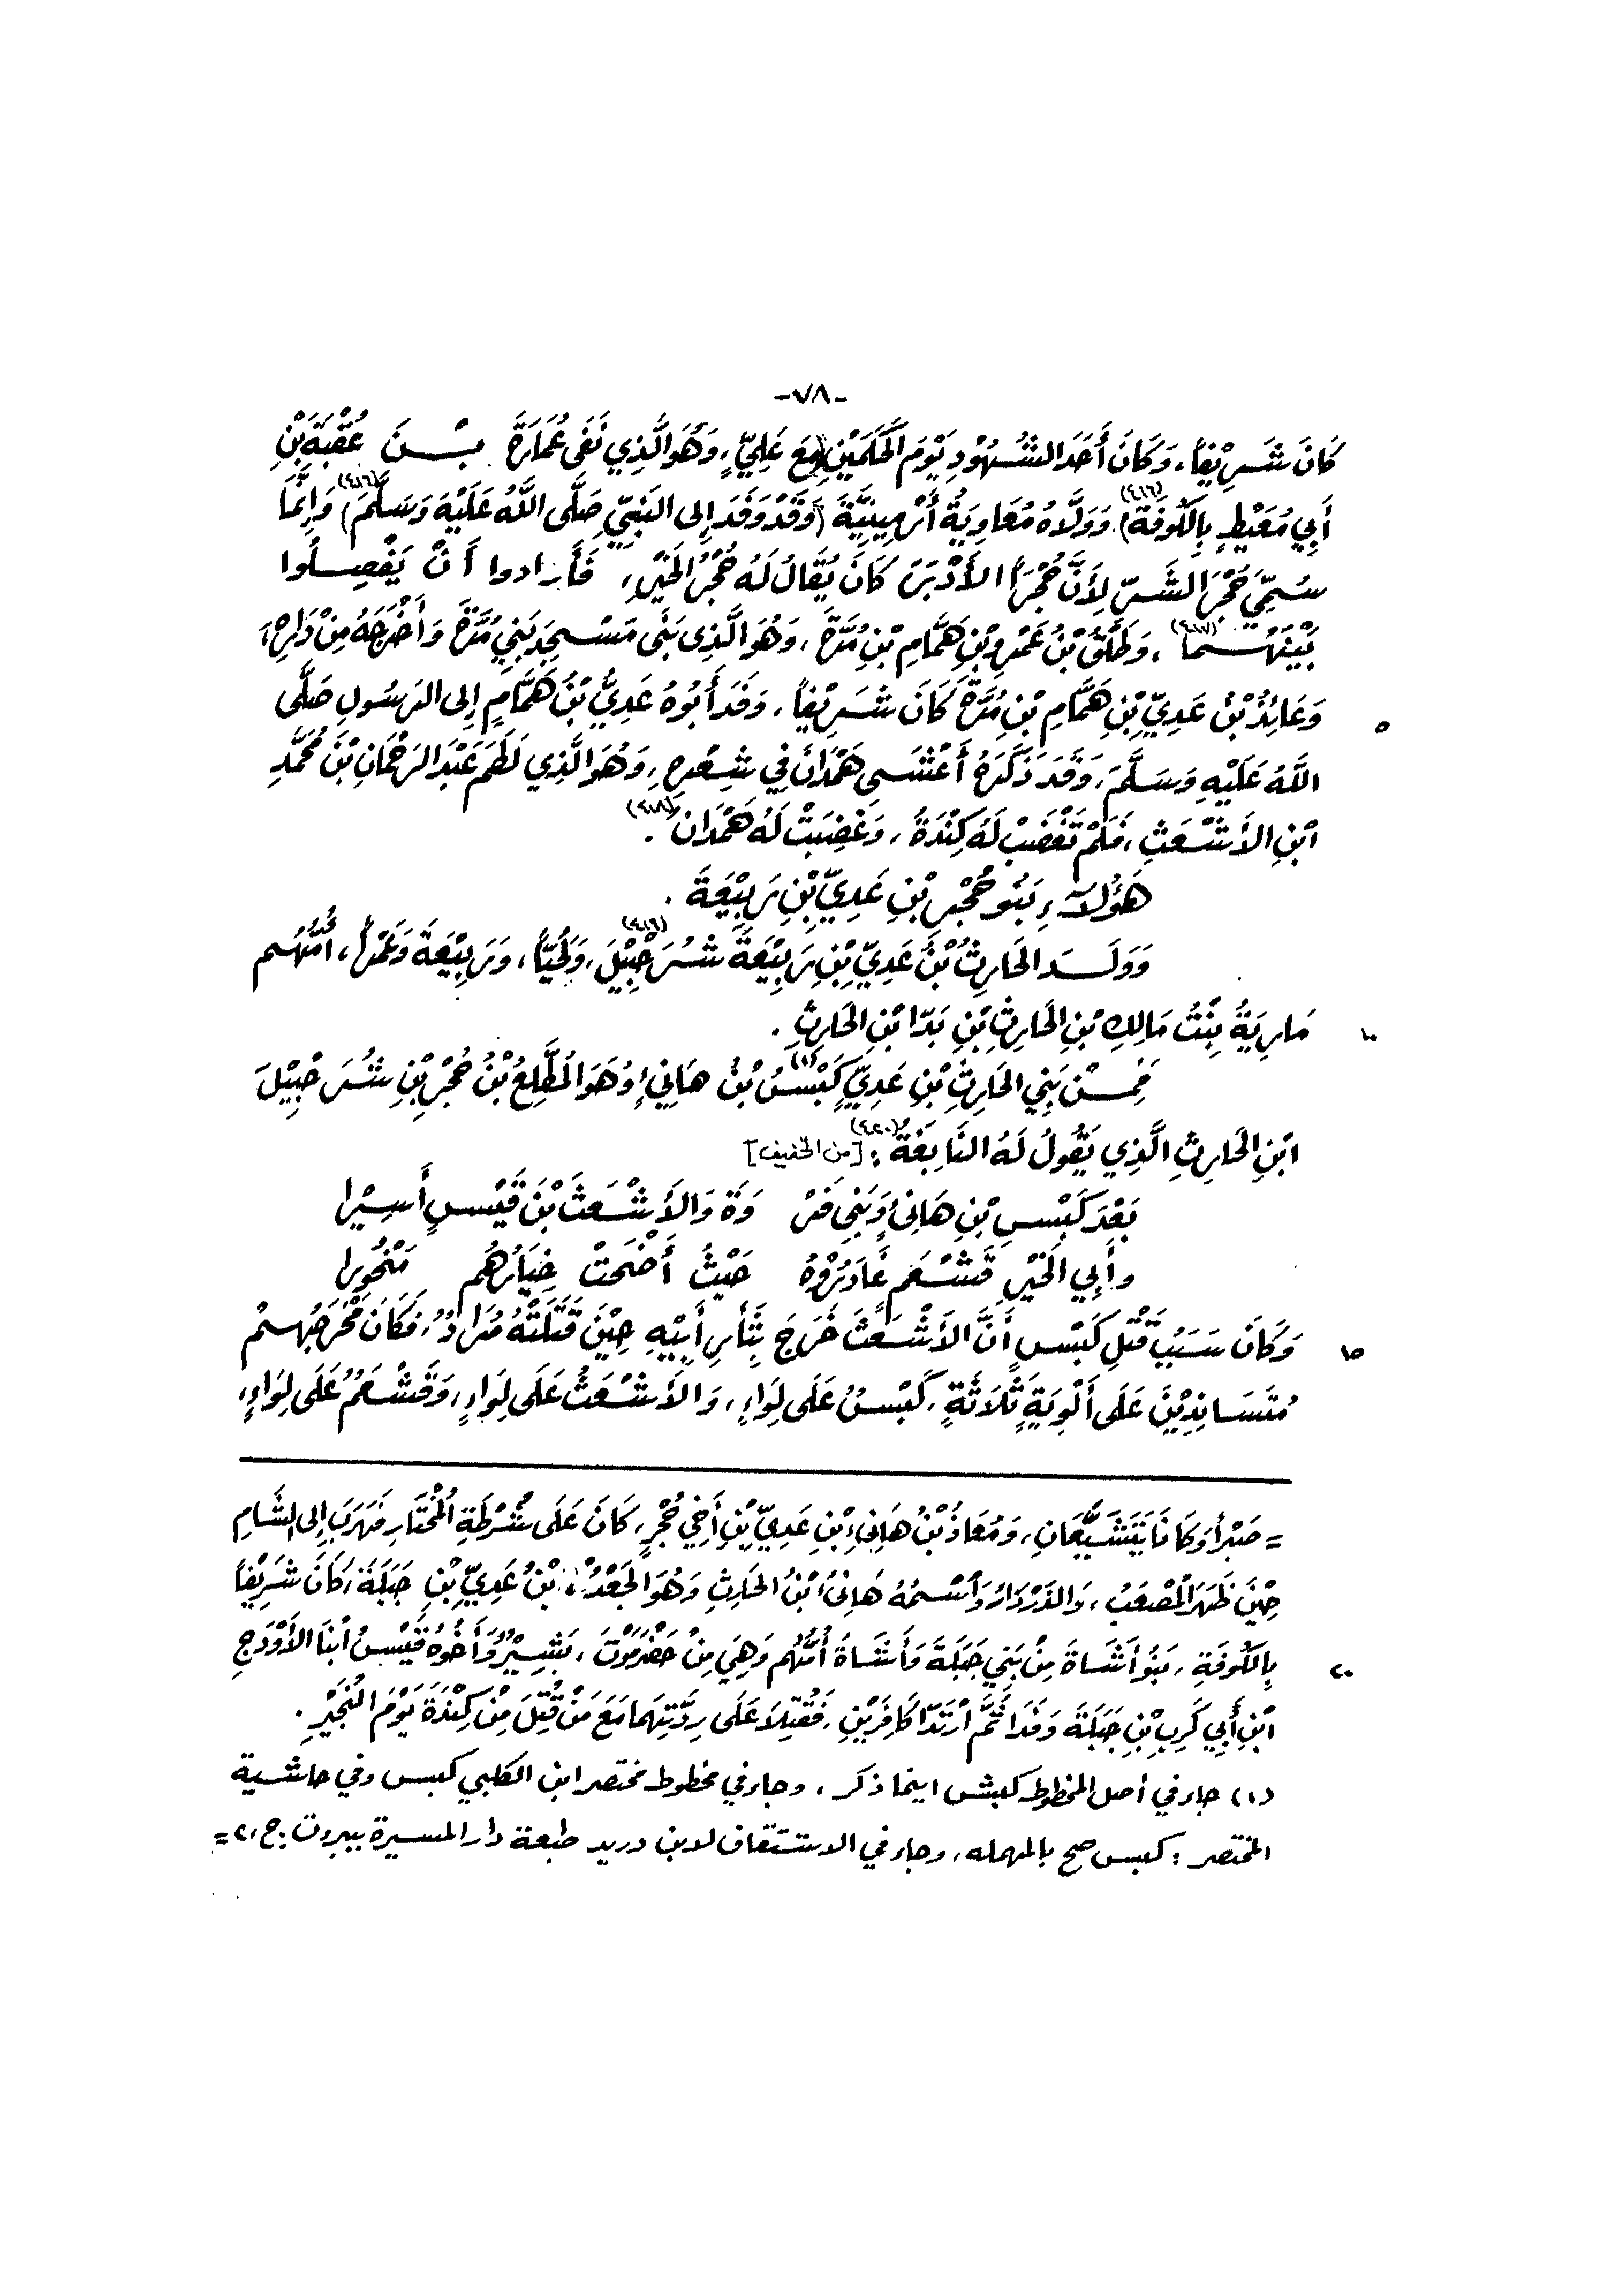 -٧٨-
كَانَ شَرِيْفاً، وَكَانَ أَحَدَ الشُّهُوْدِ يَوْمَ الحَكَمَيْنِ مَعَ عَلِيٍّ، وَهُوَ الَّذِي نَفَى عُمَارَةَ بْنَ عُقْبَةَ بْنِ
أَبِي مُعَيْطٍ بِالكُوفَةِ (٤١٦) وَوَلَّاهُ مُعَاوِيَةُ أَرْمِينِيَّةَ (وَقَدْ وَفَدَ إِلى النَبِيِّ صَلَّى اللَّهُ عَلَيْهِ وَسَلَّمَ) (٤١٦) وَإِنَّمَا
سُمِّيَ حُجْرَ الشَّرِّ لِأَنَّ حُجْرَاً الأَدْبَرَ كَانَ يُقَالُ لَهُ حُجْرُ الخَيْرِ، فَأَرادوا أَنْ يَفْصِلُوا
بَيْنَهُمَا (٤١٧)، وَطَلْقُ بْنُ عَمْرِو بْنِ هَمَّامِ بْنِ مُرَّةَ، وَهُوَ الَّذِى بَنَى مَسْجِدَ بَنِي مُرَّةَ وَأَخْرَجَهُ مِنْ دَارِهِ،
وَعَائِذُ بْنُ عَدِيِّ بْنِ هَمَّامِ بْنِ مُرَّةَ كَانَ شَرِيْفاً، وَفَدَ أَبُوهُ عَدِيُّ بْنُ هَمَّامٍ إِلى الرَسُولِ صَلَّى
٥
اللَّهُ عَلَيْهِ وَسَلَّمَ، وَقَد ذَكَرَهُ أَعْشَى هَمْدَانَ فِي شِعْرِهِ، وَهُوَ الَّذِي لَطَمَ عَبْدَ الرَحْمَانِ بْنَ مُحَمَّدِ
ابْنِ الأَشْعَثِ، فَلَمْ تَغْضَبْ لَهُ كِنْدَةُ، وَغَضِبَتْ لَهُ هَمْدَانُ (٤١٨).
هَؤُلَآءِ بَنُو حُجْرِ بْنِ عَدِيِّ بْنِ رَبِيْعَةَ.
وَوَلَدَ الحَارِثُ بْنُ عَدِيِّ بْنِ رَبِيْعَةَ شُرَحْبِيْلَ (٤١٩)، وَلُحَيّاً، وَرَبِيْعَةَ وَعَمْراً، أُمُّهُم
مَارِيَةُ بِنْتُ مَالِكِ بْنِ الحَارِثِ بْنِ بَدَّا بْنِ الحَارِثِ.
١٠
فَمِنْ بَنِي الحَارِثِ بْنِ عَدِيٍّ كَبْسُ (١) بْنُ هَانِيءٍ وَهُوَ المُطَّلِعُ بْنُ حُجْرِ بْنِ شُرَحْبِيْلَ
ابْنِ الحَارِثِ الَّذِي يَقُولُ لَهُ النَابِغَةُ (٤٢٠): [من الخفيف]
بَعْدَ كَبْسِ بْنِ هَانِئٍ وَبَنِى فَرْ وَةَ وَالأَشْعَثَ بْنَ قَيْسٍ أَسِيْرا
وأَبِي الخَيْرِ قَشْعَمٍ غَادَرُوْهُ حَيْثُ أَضْحَتْ خِيَارُهُم مَنْحُورا
وَكَانَ سَبَبُ قَتْلِ كَبْسٍ أَنَّ الأَشْعَثَ خَرَجَ بِثَأْرِ أَبِيْهِ حِيْنَ قَتَلَتْهُ مُرَادُ، فَكَانَ مَخْرَجُهُمْ
١٥
مُتَسَانِدِيْنَ عَلَى أَلْوِيَةٍ ثَلَاثَةٍ، كَبْسٌ عَلَى لِوَاءٍ، وَالأَشْعَثُ عَلَى لِوَاءٍ، وَقَشْعَمٌ عَلَى لِوَاءٍ،
= صَبْراً وَكَانَا يَتَشَيَّعَانِ، وَمُعَاذُ بْنُ هَانِىءِ بْنِ عَدِيِّ بْنِ أَخِي حُجْرٍ، كَانَ عَلَى شُرْطَةِ المُخْتَارِ فَهَرَبَ إِلى الشَّامِ
حِيْنَ ظَهَرَ المُصْعَبُ، وَالدَرْدَارُ وَاسْمُهُ هَانِىُٔ بْنُ الحَارِثِ وَهُوَ الجَعْدُ بْنُ عَدِيِّ بْنِ جَبَلَةَ، كَانَ شَرِيْفاً
بِالكُوفَةِ، بَنُو أَشَاةَ مِنْ بَنِي جَبَلَةَ وَأَشَاةُ أُمُّهُم وَهِيَ مِنْ حَضْرَمَوْتَ، بَشِيْرٌ وَأَخُوهُ قَيْسُ ابْنَا الأَوْدَجِ
٢٠
ابْنِ أَبِي كَرِبِ بْنِ جَبَلَةَ وَفَدا ثُمَّ ارْتَدَّا كَافِرَيْنِ، فَقُتِلَا عَلَى رِدَّتِهِمَا مَعَ مَنْ قُتِلَ مِنْ كِنْدَةَ يَوْمَ النُجَيْرِ.
(١) جاء في أصل المخطوط كبش اينما ذكر، وجاء في مخطوط مختصر ابن الكلبي كبس وفي حاشية
المختصر: كبس صح بالمهمله، وجاء في الاشتقاق لابن دريد طبعة دار المسيرة ببيروت، ج،٢ =